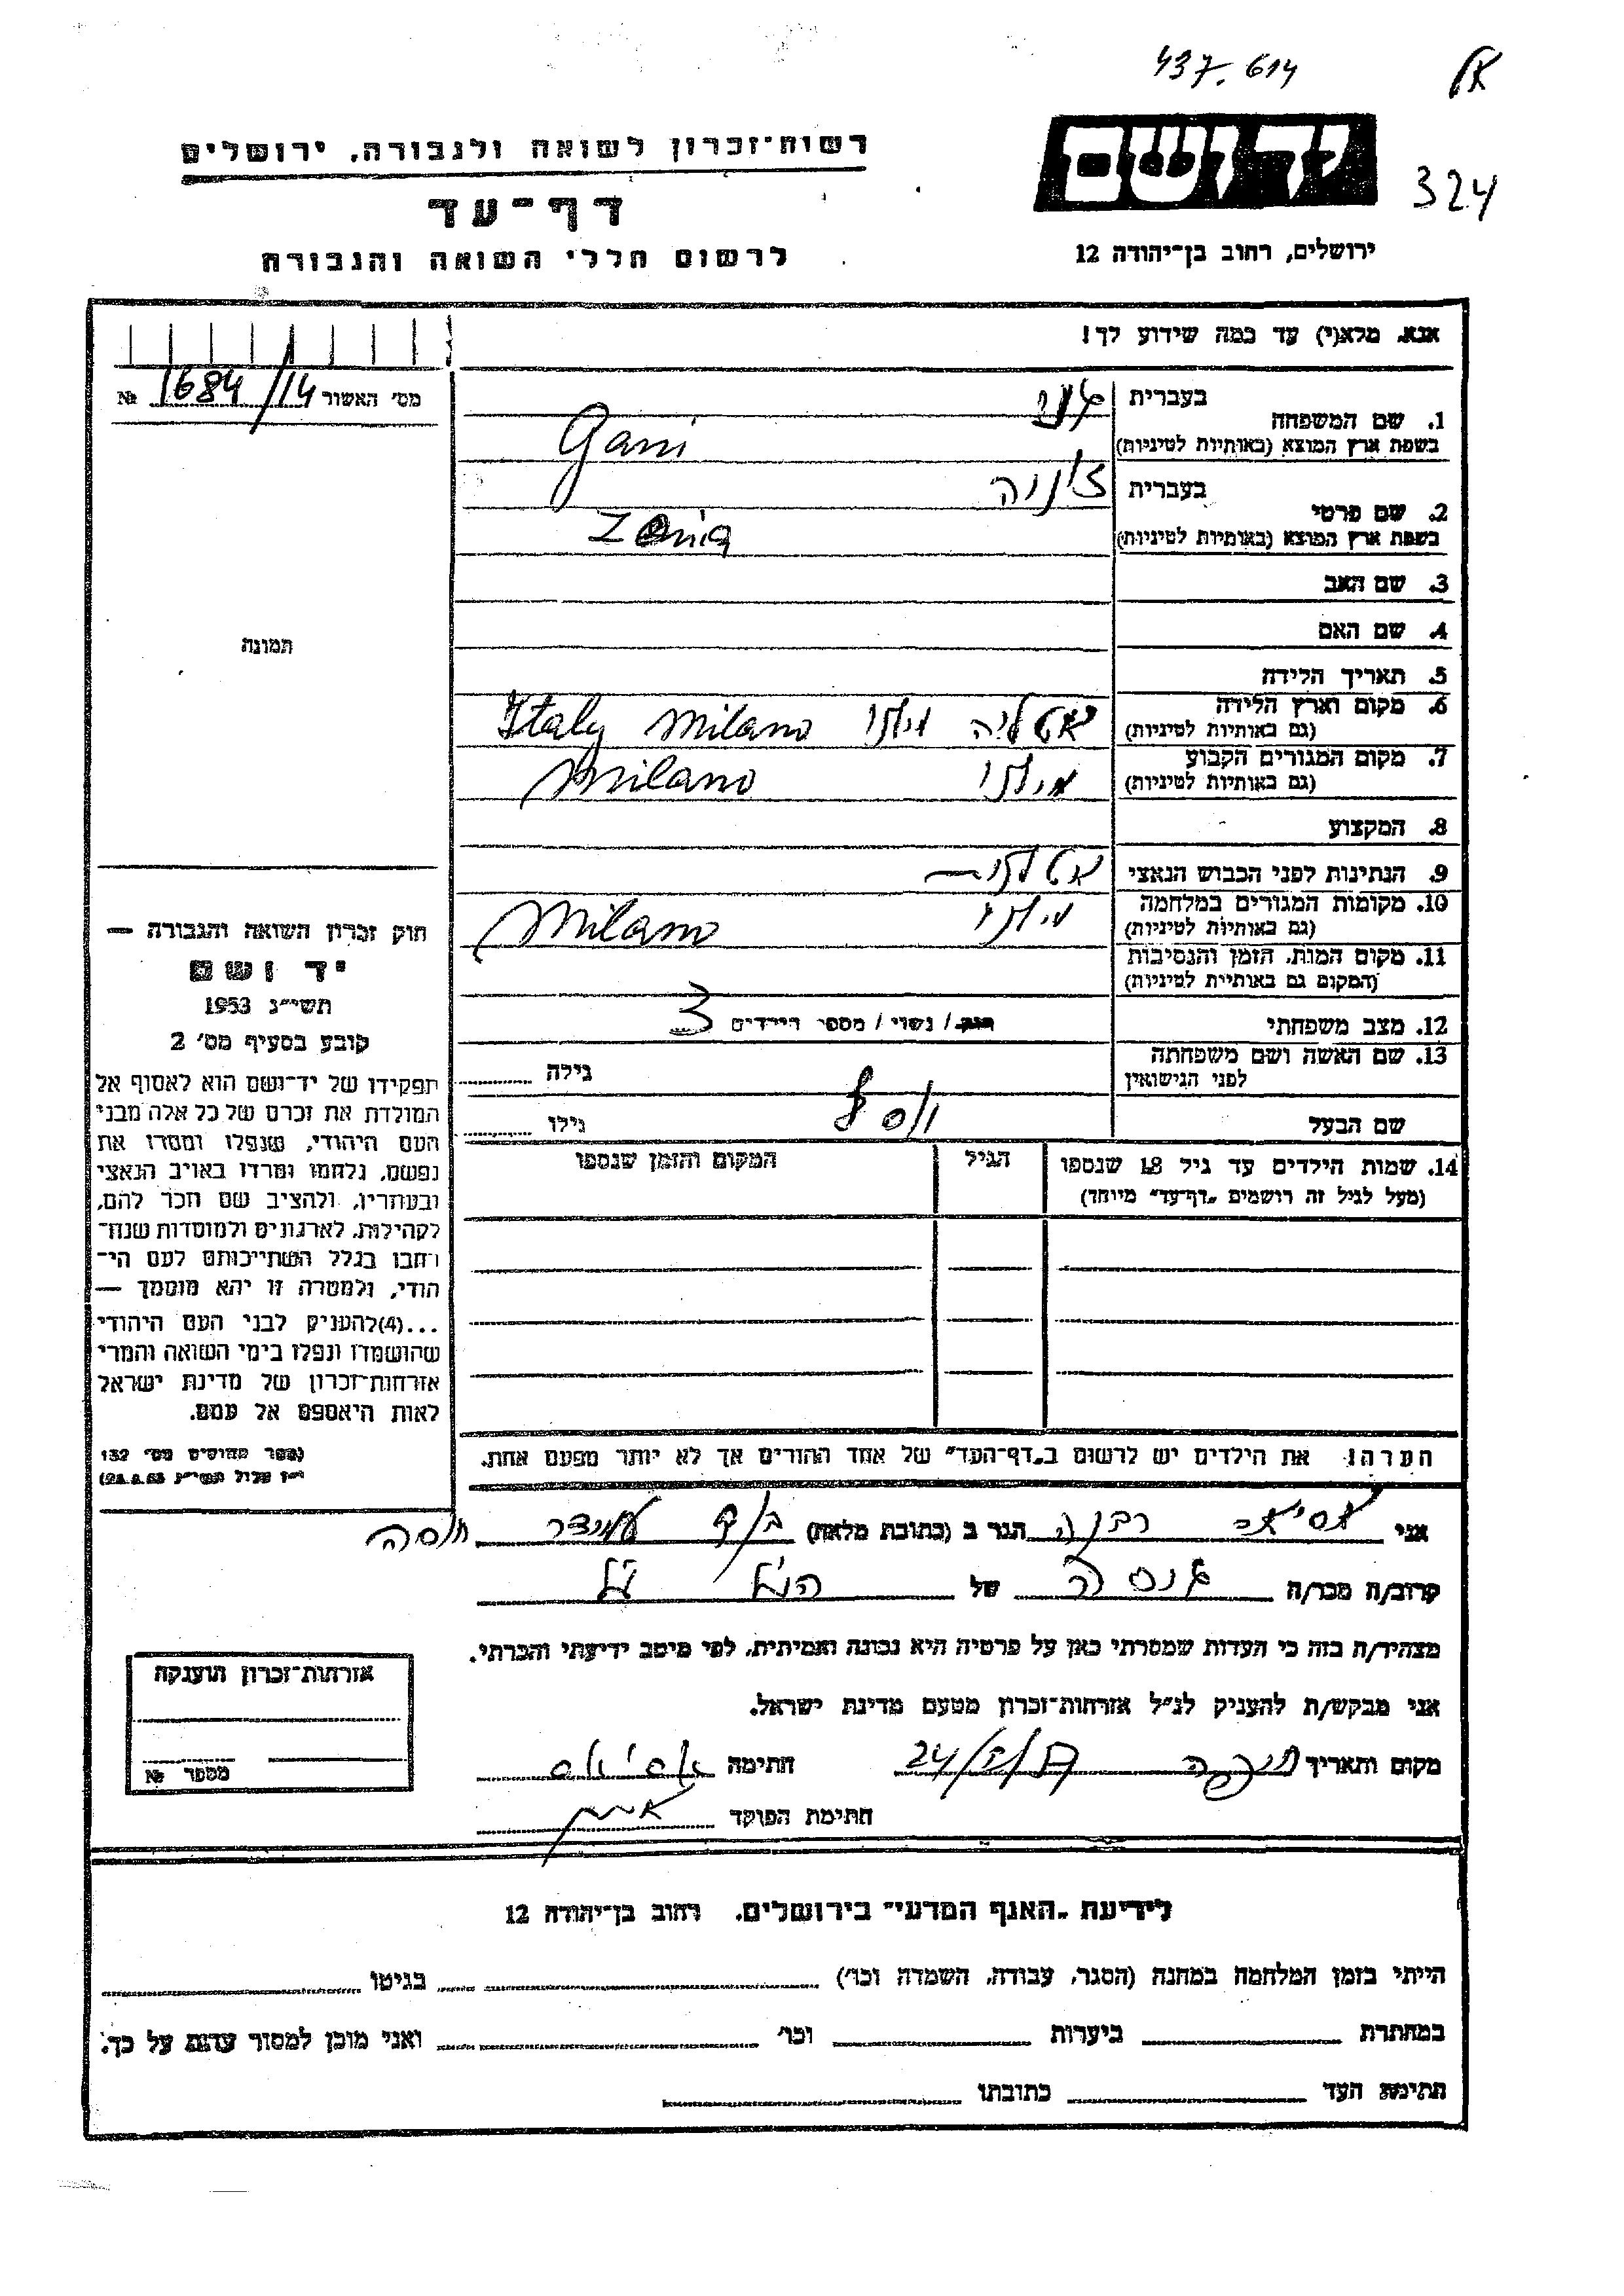 437.614
יד ושם
324
ירושלים, רחוב בן־יהודה 12
רשות־זכרון לשואה ולגבורה, ירושלים
דף־עד
לרשום חללי השואה והגבורה
אנא, מלא(י) עד כמה שידוע לך!
מס' האשור 1684/14 №
1. שם המשפחה
בעברית גני
בשפת ארץ המוצא (באותיות לטיניות) Gani
2. שם פרטי
בעברית
בשפת ארץ המוצא (באותיות לטיניות)
3. שם האב
4. שם האם
5. תאריך הלידה
6. מקום וארץ הלידה
(גם באותיות לטיניות) איטליה מילנו Italy Milano
7. מקום המגורים הקבוע
(גם באותיות לטיניות) מילנו Milano
8. המקצוע
9. הנתינות לפני הכבוש הנאצי
10. מקומות המגורים במלחמה
(גם באותיות לטיניות) מילנו Milano
11. מקום המות, הזמן והנסיבות
(המקום גם באותיות לטיניות)
12. מצב משפחתי רווק / נשוי / מספר הילדים 3
13. שם האשה ושם משפחתה
לפני הנישואין
גילה
שם הבעל
גילו
14. שמות הילדים עד גיל 18 שנספו
(מעל לגיל זה רושמים "דף־עד" מיוחד)
הגיל
המקום והזמן שנספו
הערה: את הילדים יש לרשום ב"דף־העד" של אחד ההורים אך לא יותר מפעם אחת.
תמונה
חוק זכרון השואה והגבורה —
יד ושם
תשי"ג 1953
קובע בסעיף מס' 2
תפקידו של יד־ושם הוא לאסוף אל
המולדת את זכרם של כל אלה מבני
העם היהודי, שנפלו ומסרו את
נפשם, נלחמו ומרדו באויב הנאצי
ובעוזריו, ולהציב שם וזכר להם,
לקהילות, לארגונים ולמוסדות שנח־
רבו בגלל השתייכותם לעם הי־
הודי, ולמטרה זו יהא מוסמך —
...(4) להעניק לבני העם היהודי
שהושמדו ונפלו בימי השואה והמרי
אזרחות־זכרון של מדינת ישראל
לאות היאספם אל עמם.
(ספר החוקים מס' 132
י"ז אלול תשי"ג 28.8.53)
אני הגר ב (כתובת מלאה)
קרוב/ה מכר/ה של
מצהיר/ה בזה כי העדות שמסרתי כאן על פרטיה היא נכונה ואמיתית, לפי מיטב ידיעתי והכרתי.
אני מבקש/ת להעניק לנ"ל אזרחות־זכרון מטעם מדינת ישראל.
מקום ותאריך חתימה
חתימת הפוקד
אזרחות־זכרון הוענקה
מספר №
לידיעת "האגף המדעי" בירושלים, רחוב בן־יהודה 12
הייתי בזמן המלחמה במחנה (הסגר, עבודה, השמדה וכו') בגיטו
במחתרת ביערות וכו' ואני מוכן למסור עדות על כך.
חתימת העד כתובתו